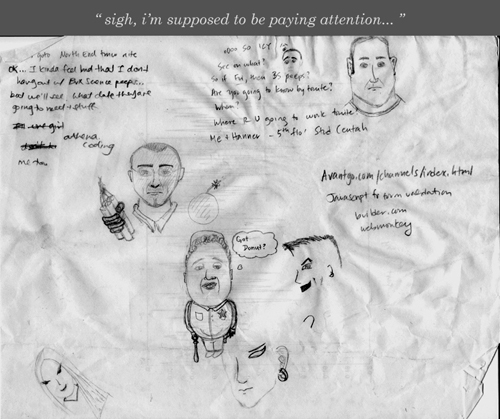 “ sigh, i'm supposed to be paying attention... ”
goto North End tmrw nite
OK... I kinda feel bad that I don't
hang out w/ Env Science peeps..
but we'll see what date they're
going to meet + stuff
athena
coding
me too
Soc on what?
So 2 Fri, then 35 peeps?
Are you going to know by tonite?
When?
Where R U going to work tonite?
Me + Hanner - 5th flo' Stud Centah
Avantgo.com/channels/index.html
Javascript for form validation
builder.com
webmonkey
Got
Donut?